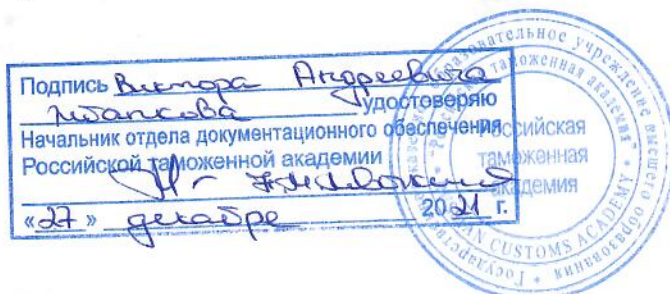 Подпись Виктора Андреевича
удостоверяю
Начальник отдела документационного обеспечения
Российской таможенной академии
«27» декабря 2021 г.
Российская
таможенная
академия
образовательное учреждение высшего образования
"Российская таможенная академия"
CUSTOMS ACADEMY